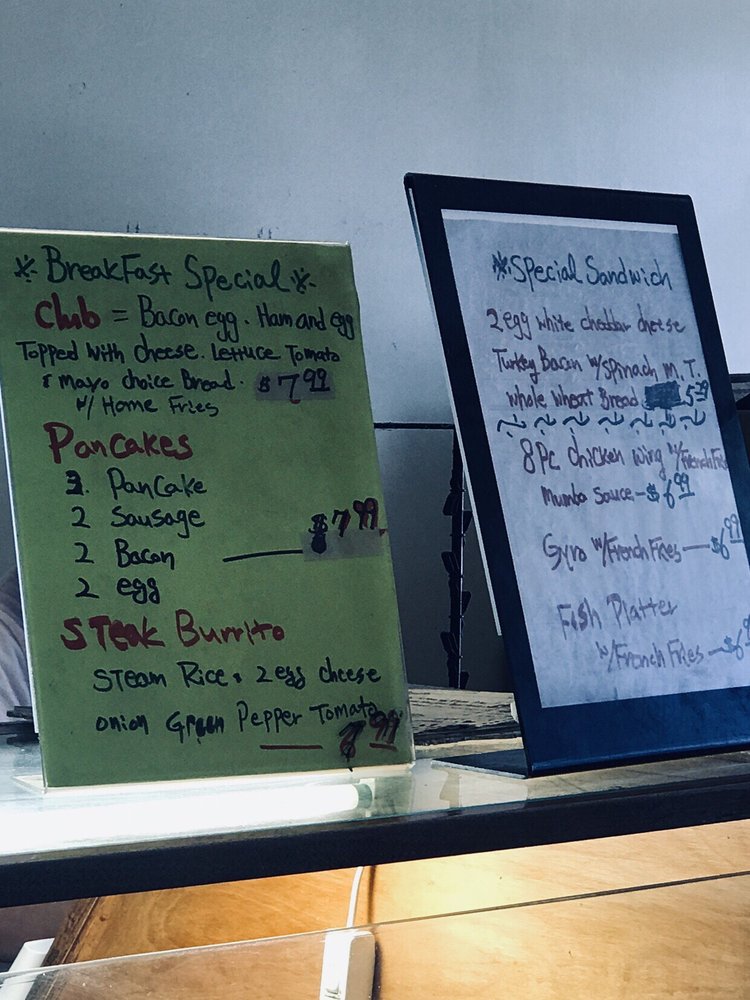 * BreakFast Special *
Club = Bacon egg. Ham and egg
Topped with cheese. Lettuce Tomato
& mayo choice Bread. $7.99
w/ Home Fries
Pancakes
3. Pancake
2 Sausage
2 Bacon — $7.99
2 egg
STeak Burrito
STeam Rice. 2 egg cheese
onion Green Pepper Tomato
— 7.99
* Special Sandwich
2 egg white cheddar cheese
Turkey Bacon w/spinach M.T.
whole wheat Bread 5.29
8 Pc chicken wing w/French Fries
mumbo sauce - $6.99
Gyro w/French Fries — $6.99
Fish Platter
w/French Fries — $6